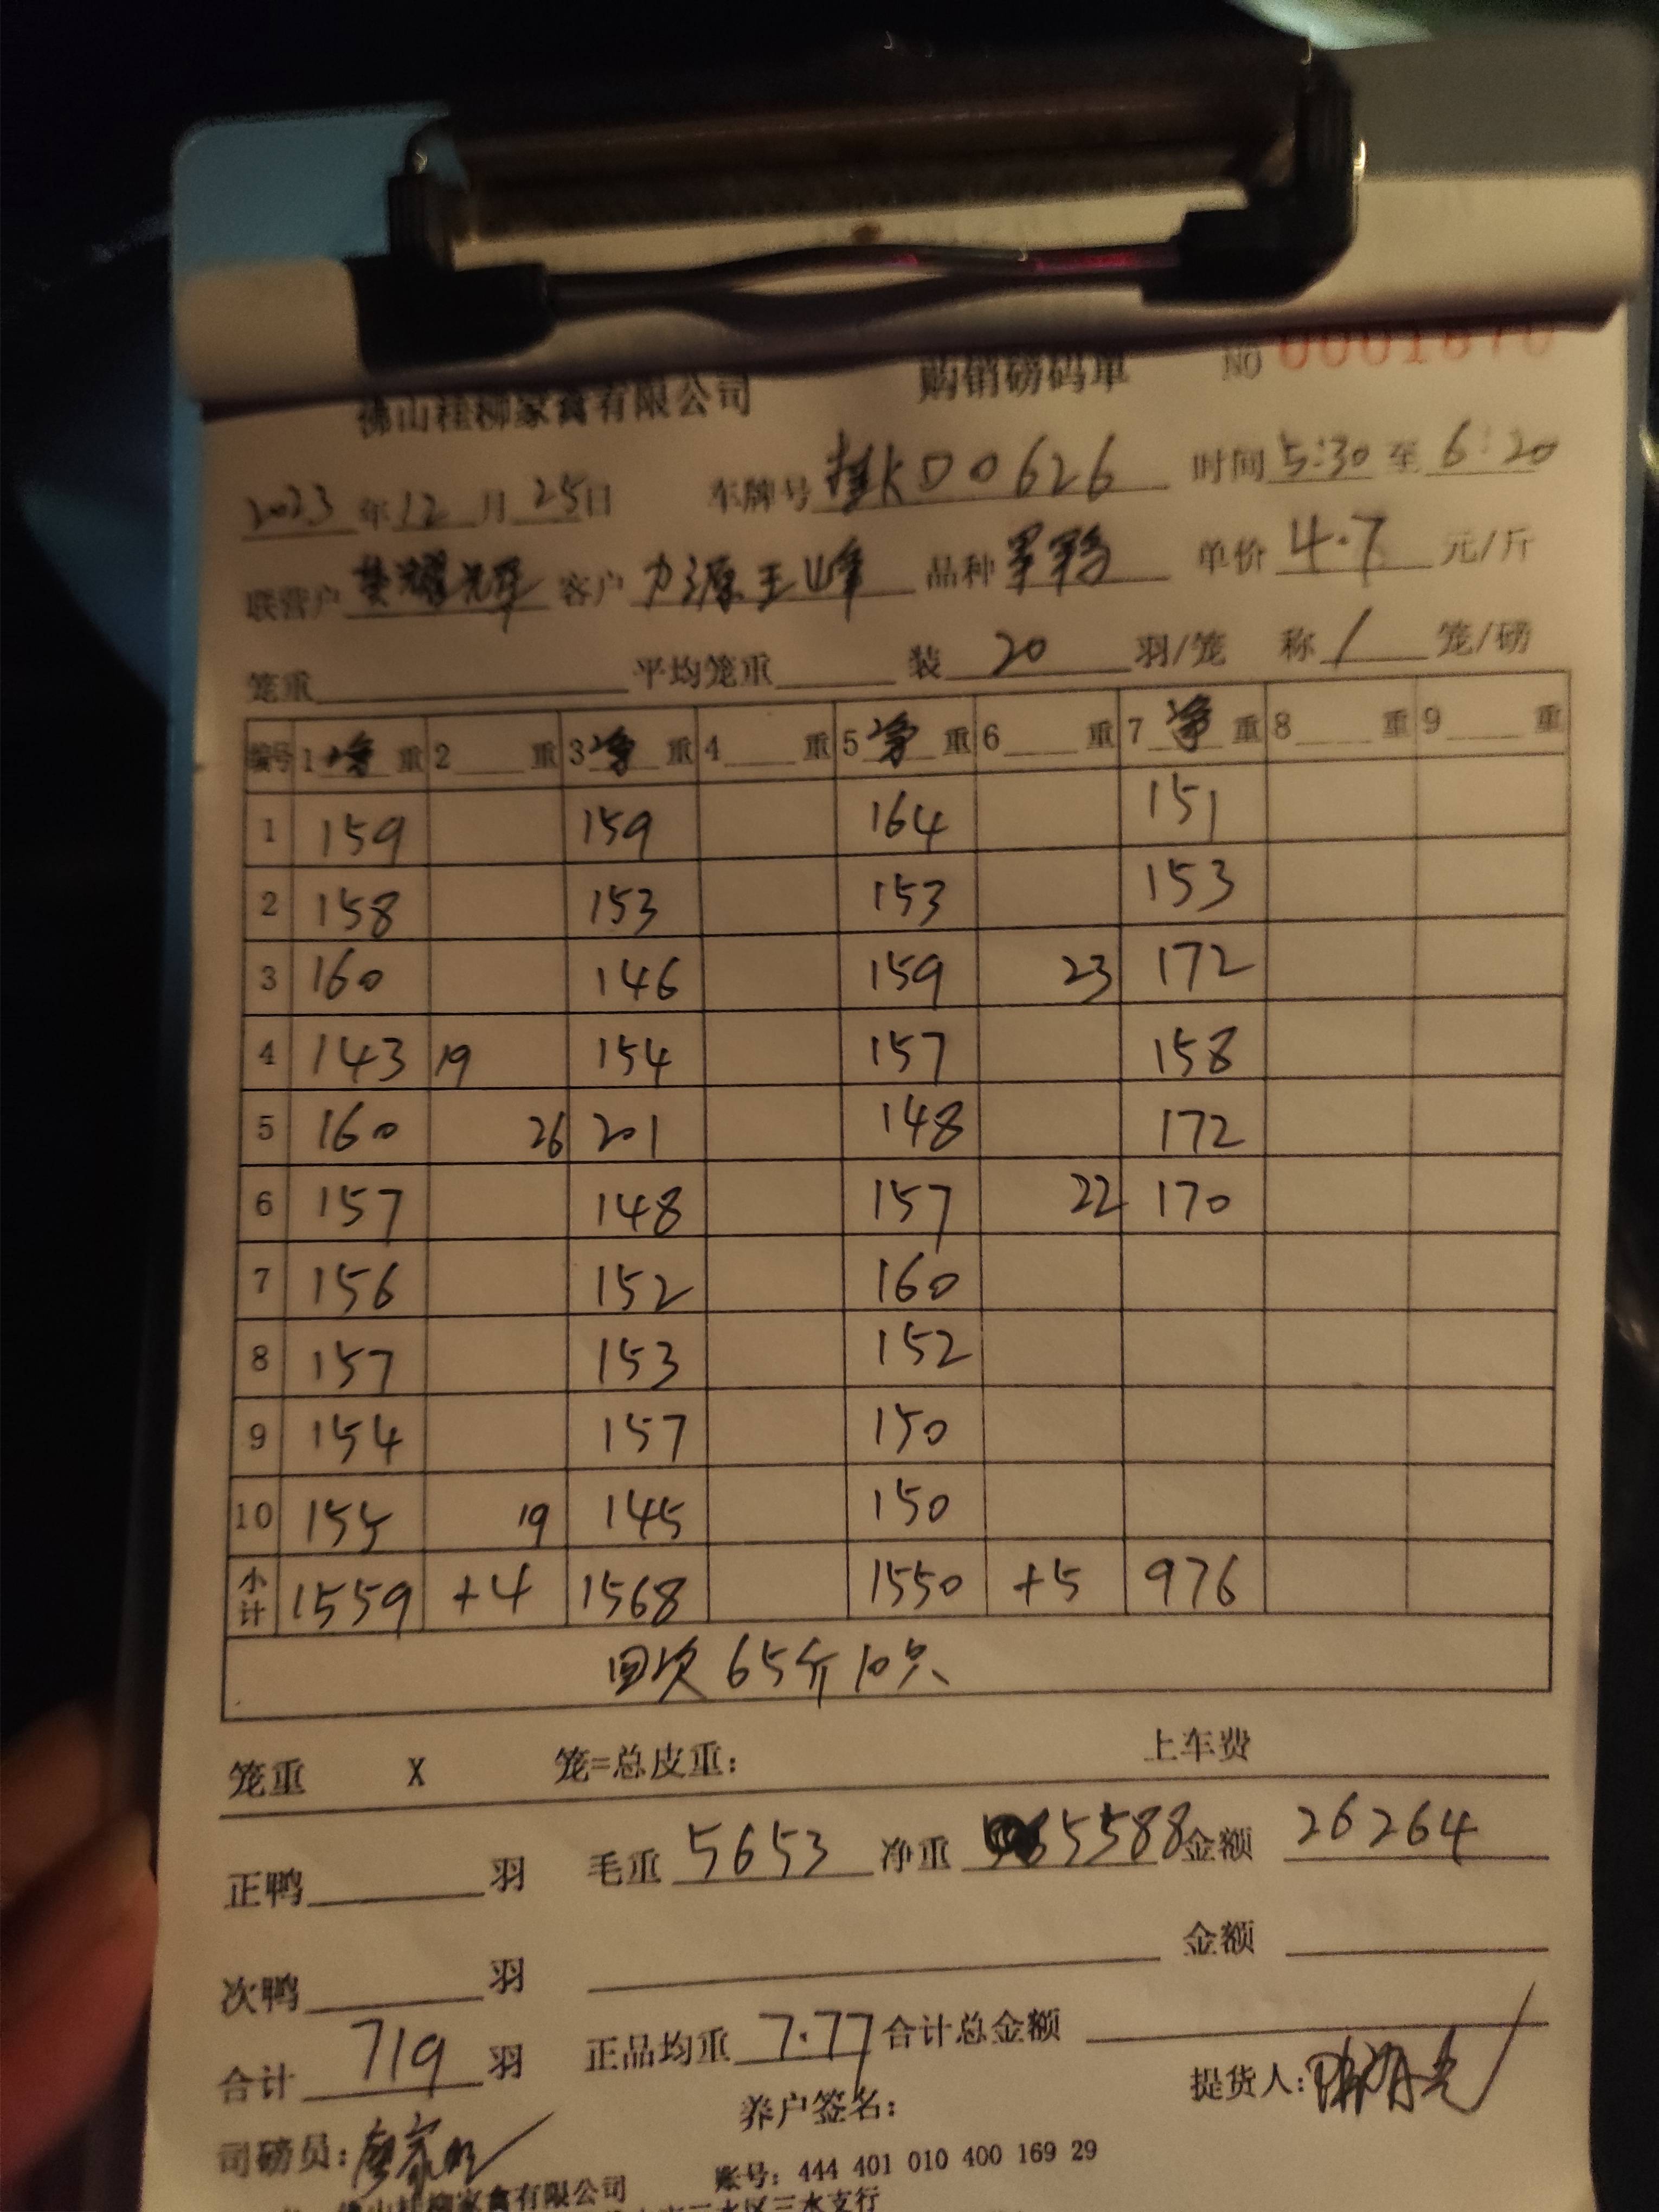 佛山桂柳家禽有限公司 购销磅码单 NO 0001670
2023年12月25日 车牌号 桂KD0626 时间 5:30 至 6:20
联营户 客户 力源王峰 品种 单价 4.7 元/斤
笼重 平均笼重 装 20 羽/笼 称 1 笼/磅
编号 1 净 重 2 重 3 净 重 4 重 5 净 重 6 重 7 净 重 8 重 9 重
1 159 159 164 151
2 158 153 153 153
3 160 146 159 23 172
4 143 19 154 157 158
5 160 26 201 148 172
6 157 148 157 22 170
7 156 152 160
8 157 153 152
9 154 157 150
10 155 19 145 150
小计 1559 +4 1568 1550 +5 976
回次 65斤 10只
笼重 X 笼=总皮重: 上车费
正鸭 羽 毛重 5653 净重 5588 金额 26264
次鸭 羽 金额
合计 719 羽 正品均重 7.77 合计总金额
司磅员: 养户签名: 提货人:
佛山桂柳家禽有限公司 账号: 444 401 010 400 169 29
三水区三水支行